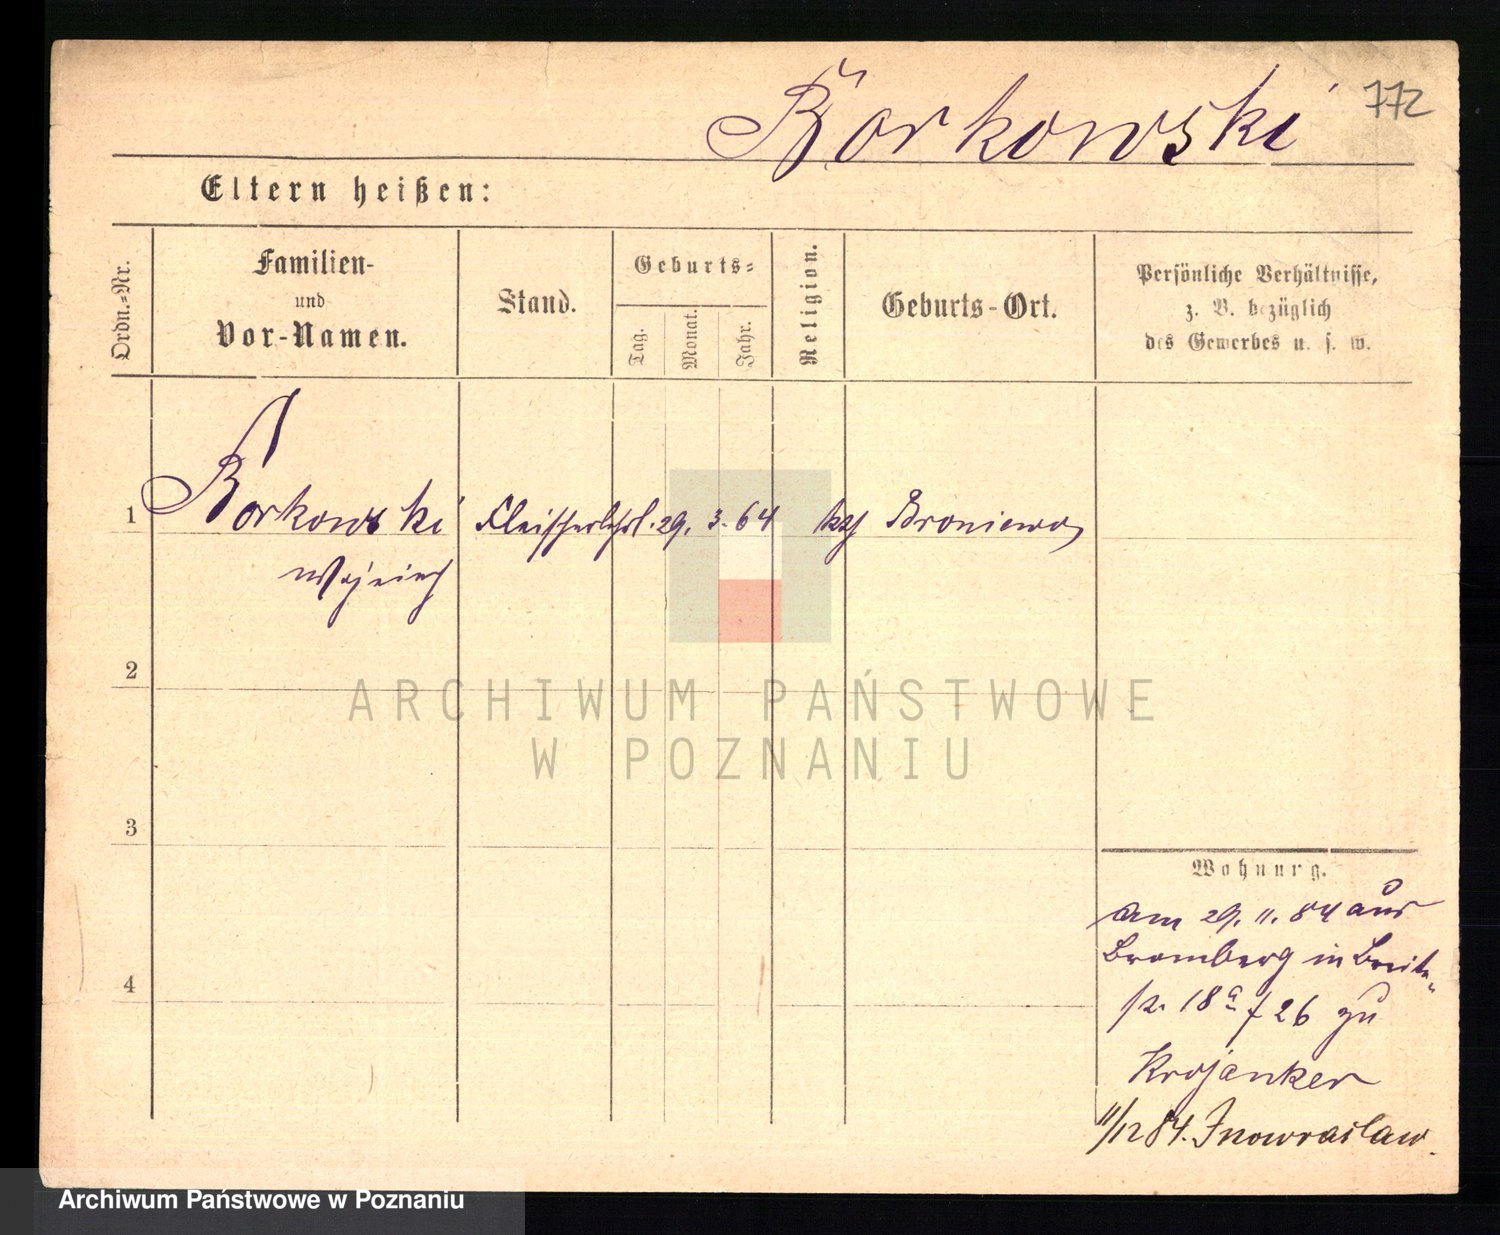 Borkowski
772
Eltern heißen:
Ordn.-Nr.
Familien-
und
Vor-Namen.
Stand.
Geburts-
Tag.
Monat.
Jahr.
Religion.
Geburts-Ort.
Persönliche Verhältnisse,
z. B. bezüglich
des Gewerbes u. s. w.
1
Borkowski Fleischerlehrl. 29. 3. 64 kth Broniewo
2
ARCHIWUM PAŃSTWOWE
W POZNANIU
3
Wohnung.
Am 29. 11. 84 aus
Bromberg in Breite-
18a / 26 zu
Krojanker
11/12 84. Inowraslaw.
4
Archiwum Państwowe w Poznaniu